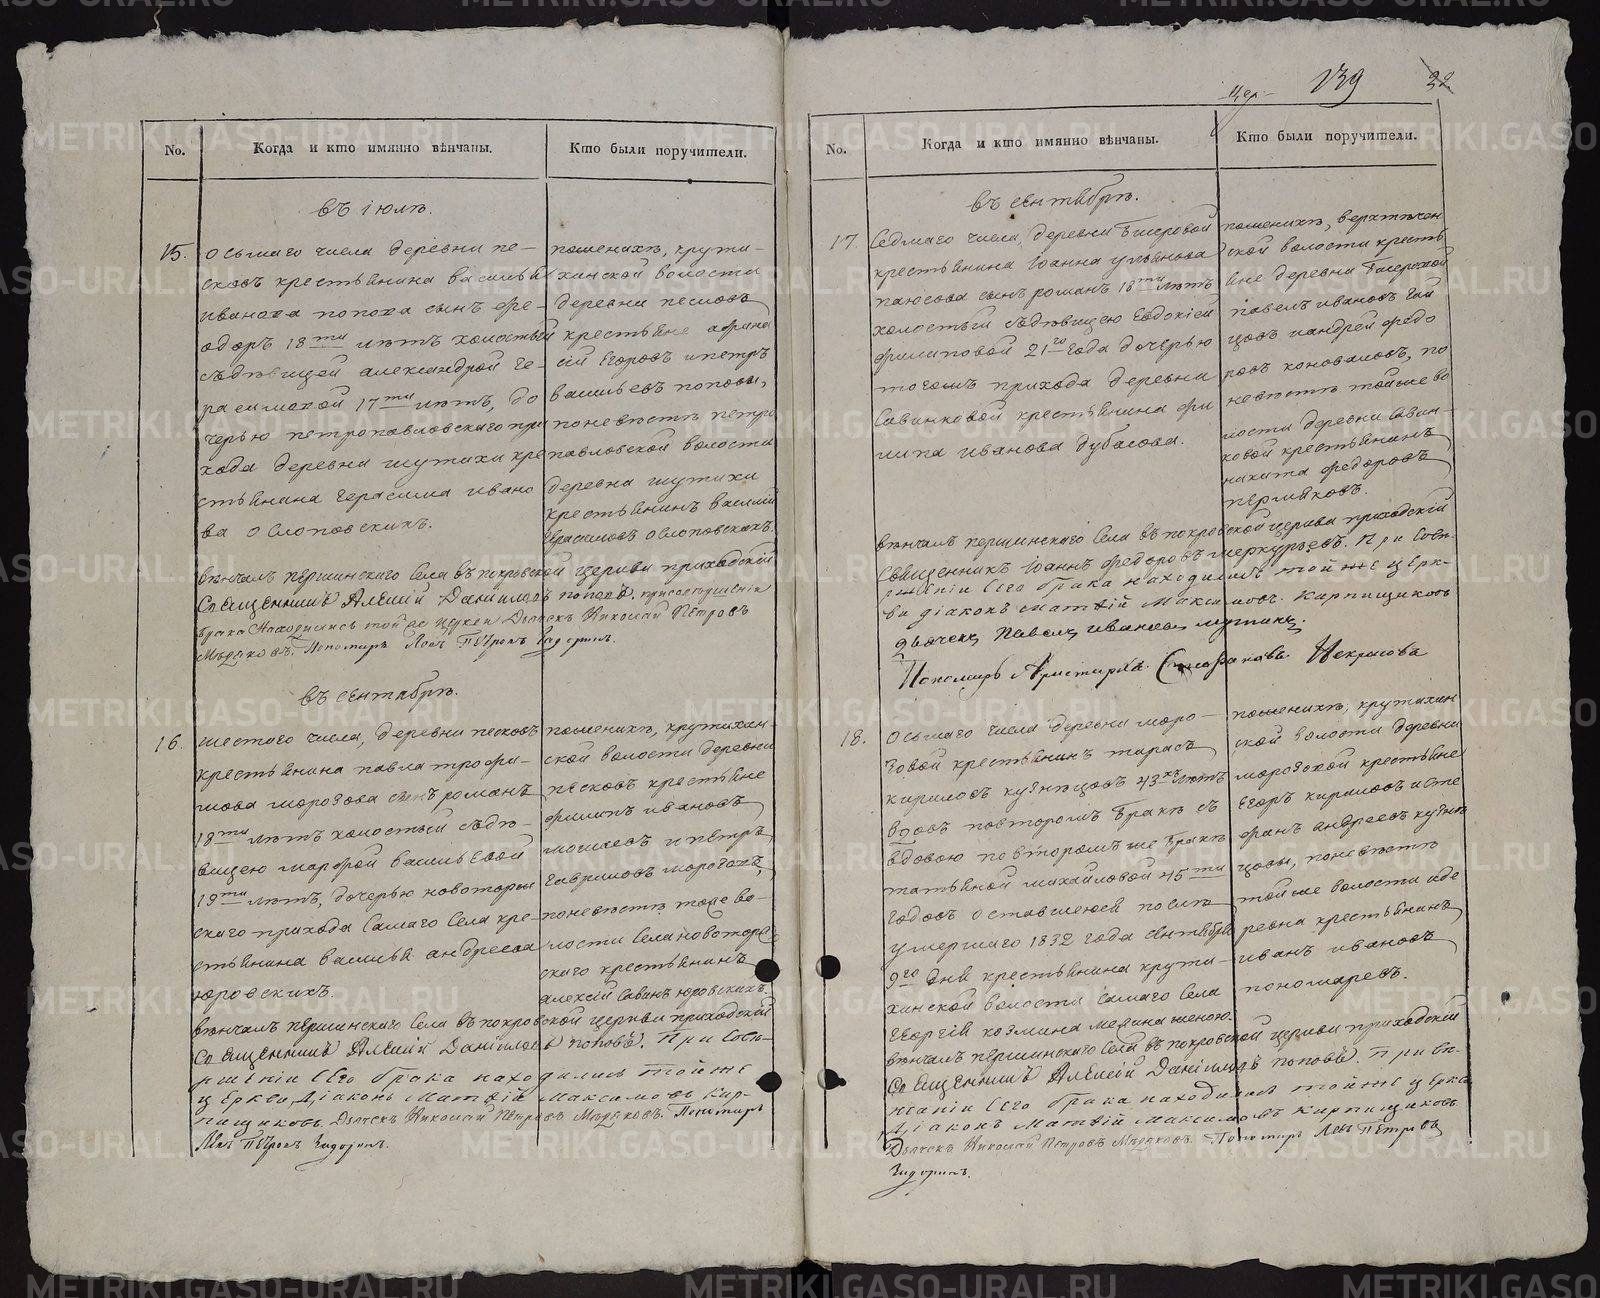 139
32
No.
Когда и кто имянно вѣнчаны.
Кто были поручители.
въ июлѣ.
15.
осьмаго числа деревни пе-
сковъ крестьянина василья
иванова попова сынъ фе-
одоръ 18ти лѣтъ холостый
съдѣвицей александрой ге-
расимовой 17ти лѣтъ, до
черью петропавловскаго при
хода деревни шутихи кре
стьянина герасима ивано
ва ослоповскихъ.
поженихѣ, крути-
хинской волости
деревни песковъ
крестьяне афана
сій егоровъ ипетръ
васильевъ поповы,
поневѣстѣ петро
павловской волости
деревни шутихи
крестьянинъ василий
герасимовъ ослоповскихъ.
вѣнчалъ першинскаго села въ покровской церкви приходскій
Священникъ Алексій Даніиловъ поповъ. присовершеніи
брака находились той же церкви Дьячекъ Николай Петровъ
Пономарь Левъ Петровъ
въ сентябрѣ.
16.
шестаго числа, деревни песковъ
крестьянина павла трофи-
мова морозова сынъ романъ
18ти лѣтъ холостый съдѣ-
вицею марфой васильевой
19ти лѣтъ, дочерью новоторж
скаго прихода самаго села кре-
стьянина василья андреева
юровскихъ.
поженихѣ, крутихин-
ской волости деревни
песковъ крестьяне
филипъ ивановъ
ипетръ
гавриловъ морозовъ,
поневѣстѣ тоже во-
лости села новоторж
скаго крестьянинъ
алексій савинъ юровскихъ.
вѣнчалъ першинскаго села въ покровской церкви приходскій
Священникъ Алексій Даніиловъ поповъ. При совѣ-
ршеніи сего брака находились той же
церкви, Діаконъ Матвій Максимовъ Кир-
пищиковъ. Дьячекъ Николай Петровъ Пономарь
Левъ Петровъ
No.
Когда и кто имянно вѣнчаны.
Кто были поручители.
въ сентябрѣ.
17.
Седмаго числа, деревни
крестьянина Іоанна ульянова
сынъ романъ 18ти лѣтъ
холостый съдѣвицею Евдокіей
филиповой 21го года дочерью
тогожъ прихода деревни
Савинковой крестьянина фи
липа иванова дубасова.
поженихѣ,
ской волости кресть
яне деревни
павелъ ивановъ
цовъ иандрей федо
ровъ коноваловъ, по
невѣстѣ тойже во
лости деревни савин-
ковой крестьянинъ
никита федоровъ
пермяковъ.
вѣнчалъ першинскаго села въ покровской церкви приходскій
священникъ Іоаннъ федоровъ меркурьевъ. При совѣ-
ршеніи сего брака находились той же церк-
ви діаконъ Матвій Максимовъ Кирпищиковъ
дьячекъ Павелъ Ивановъ
Пономарь Аристархъ Стефановъ Некрасовъ
18.
Осьмаго числа деревни моро-
зовой крестьянинъ тарасъ
кириловъ кузнецовъ 43хъ лѣтъ
вдовъ повторомъ бракѣ съ
вдовою повторомъже бракѣ
татьяной михайловой 45ти
годовъ оставшеюся послѣ
умершаго 1832 года сентября
9го дня крестьянина крути-
хинской волости самаго села
георгія козмина женою.
поженихѣ, крутихин
ской волости деревни
морозовой крестьяне
егоръ кириловъ исте
фанъ андреевъ кузне
цовы, поневѣстѣ
тойже волости иде
ревни крестьянинъ
иванъ ивановъ
пономаревъ.
вѣнчалъ першинскаго села въ покровской церкви приходскій
Священникъ Алексій Даніиловъ поповъ. При вѣ-
нчаніи сего брака находились той же церкви
Діаконъ Матвій Максимовъ Кирпищиковъ
Дьячекъ Николай Петровъ Пономарь Левъ Петровъ
METRIKI.GASO-URAL.RU